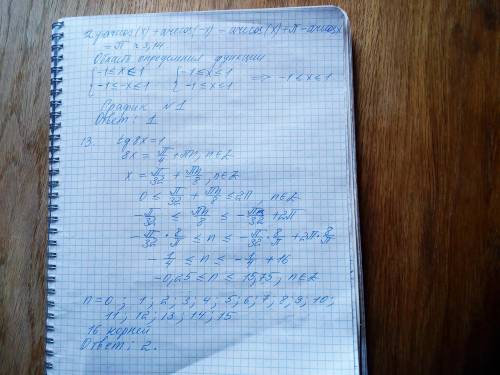 12. y=arccos(x)+arccos(-x) = arccos(x)+π-arccosx
= π ≈ 3,14
Область определения функции
{-1≤x≤1 {-1≤x≤1 => -1≤x≤1
{-1≤-x≤1 {-1≤x≤1
График №1
Ответ: 1.
13. tg8x=1
8x = π/4 + πn, n∈Z
x = π/32 + πn/8, n∈Z
0 ≤ π/32 + πn/8 ≤ 2π, n∈Z
-π/32 ≤ πn/8 ≤ -π/32 + 2π
-π/32 · 8/π ≤ n ≤ -π/32 · 8/π + 2π · 8/π
-1/4 ≤ n ≤ -1/4 + 16
-0,25 ≤ n ≤ 15,75, n∈Z
n=0; 1; 2; 3; 4; 5; 6; 7; 8; 9; 10;
11; 12; 13; 14; 15
16 корней
Ответ: 2.